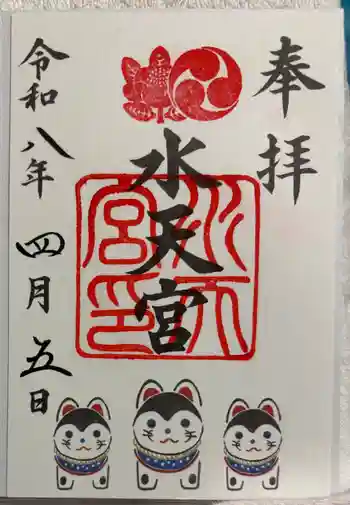 奉拝
水天宮
水天宮印
令和八年
四月五日